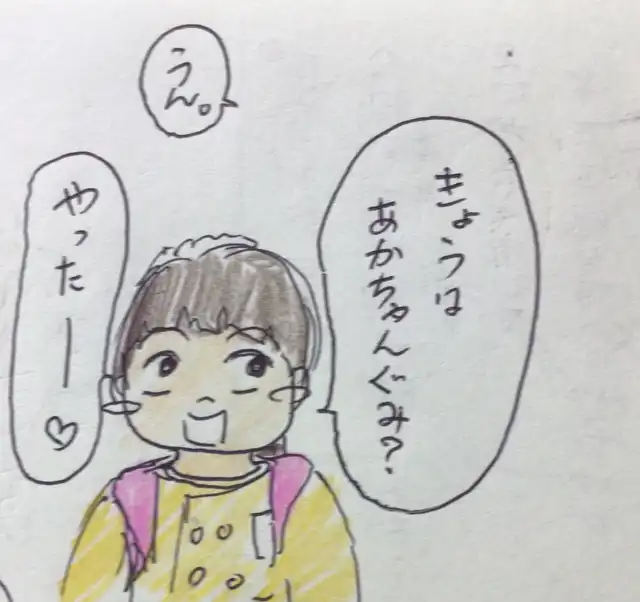 きょうは
あかちゃんぐみ?
うん。
やったー♡